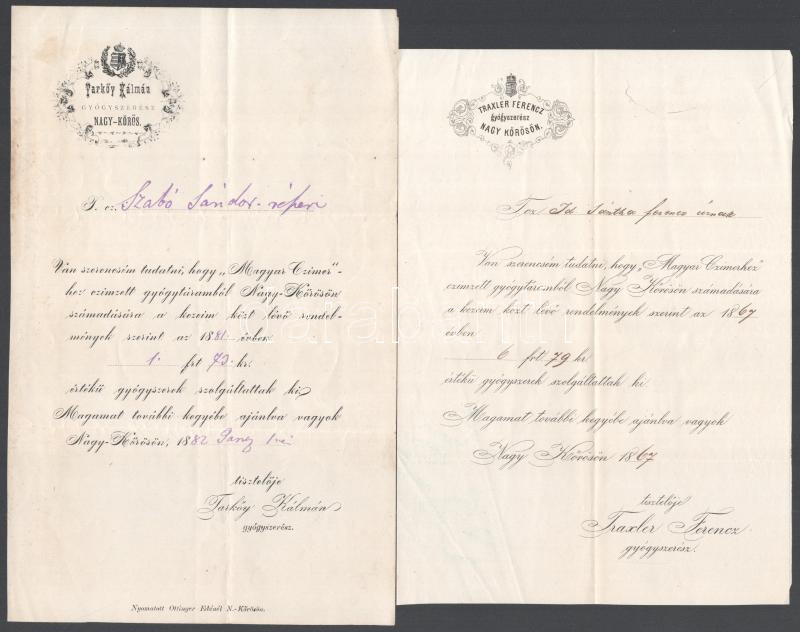 Tarkőy Kálmán
GYÓGYSZERÉSZ
NAGY-KŐRÖS.
T. cz. Szabó Sándor
Ván szerencsém tudatni, hogy „Magyar Czimer"-
hez czimzett gyógytáramból Nagy-Kőrösön
számadására a kezeim közt lévő rendel-
mények szerint az 1881 évben
1. frt 73. kr.
értékű gyógyszerek szolgáltattak ki.
Magamat további kegyébe ajánlva vagyok
Nagy-Kőrösön, 1882
tisztelője
Tarkőy Kálmán
gyógyszerész.
Nyomatott Ottinger Edénél N.-Kőrösön.
TRAXLER FERENCZ
gyógyszerész
NAGY KŐRÖSÖN.
Id Sántha ferencz úrnak
Van szerencsém tudatni, hogy „Magyar Czimerhez"
czimzett gyógytáromból Nagy Kőrösön számadására
a kezeim közt lévő rendelmények szerint az 1867
évben
6 frt 79 kr
értékű gyógyszerek szolgáltattak ki.
Magamat további kegyébe ajánlva vagyok
Nagy Kőrösön 1867
tisztelője
Traxler Ferencz
gyógyszerész.